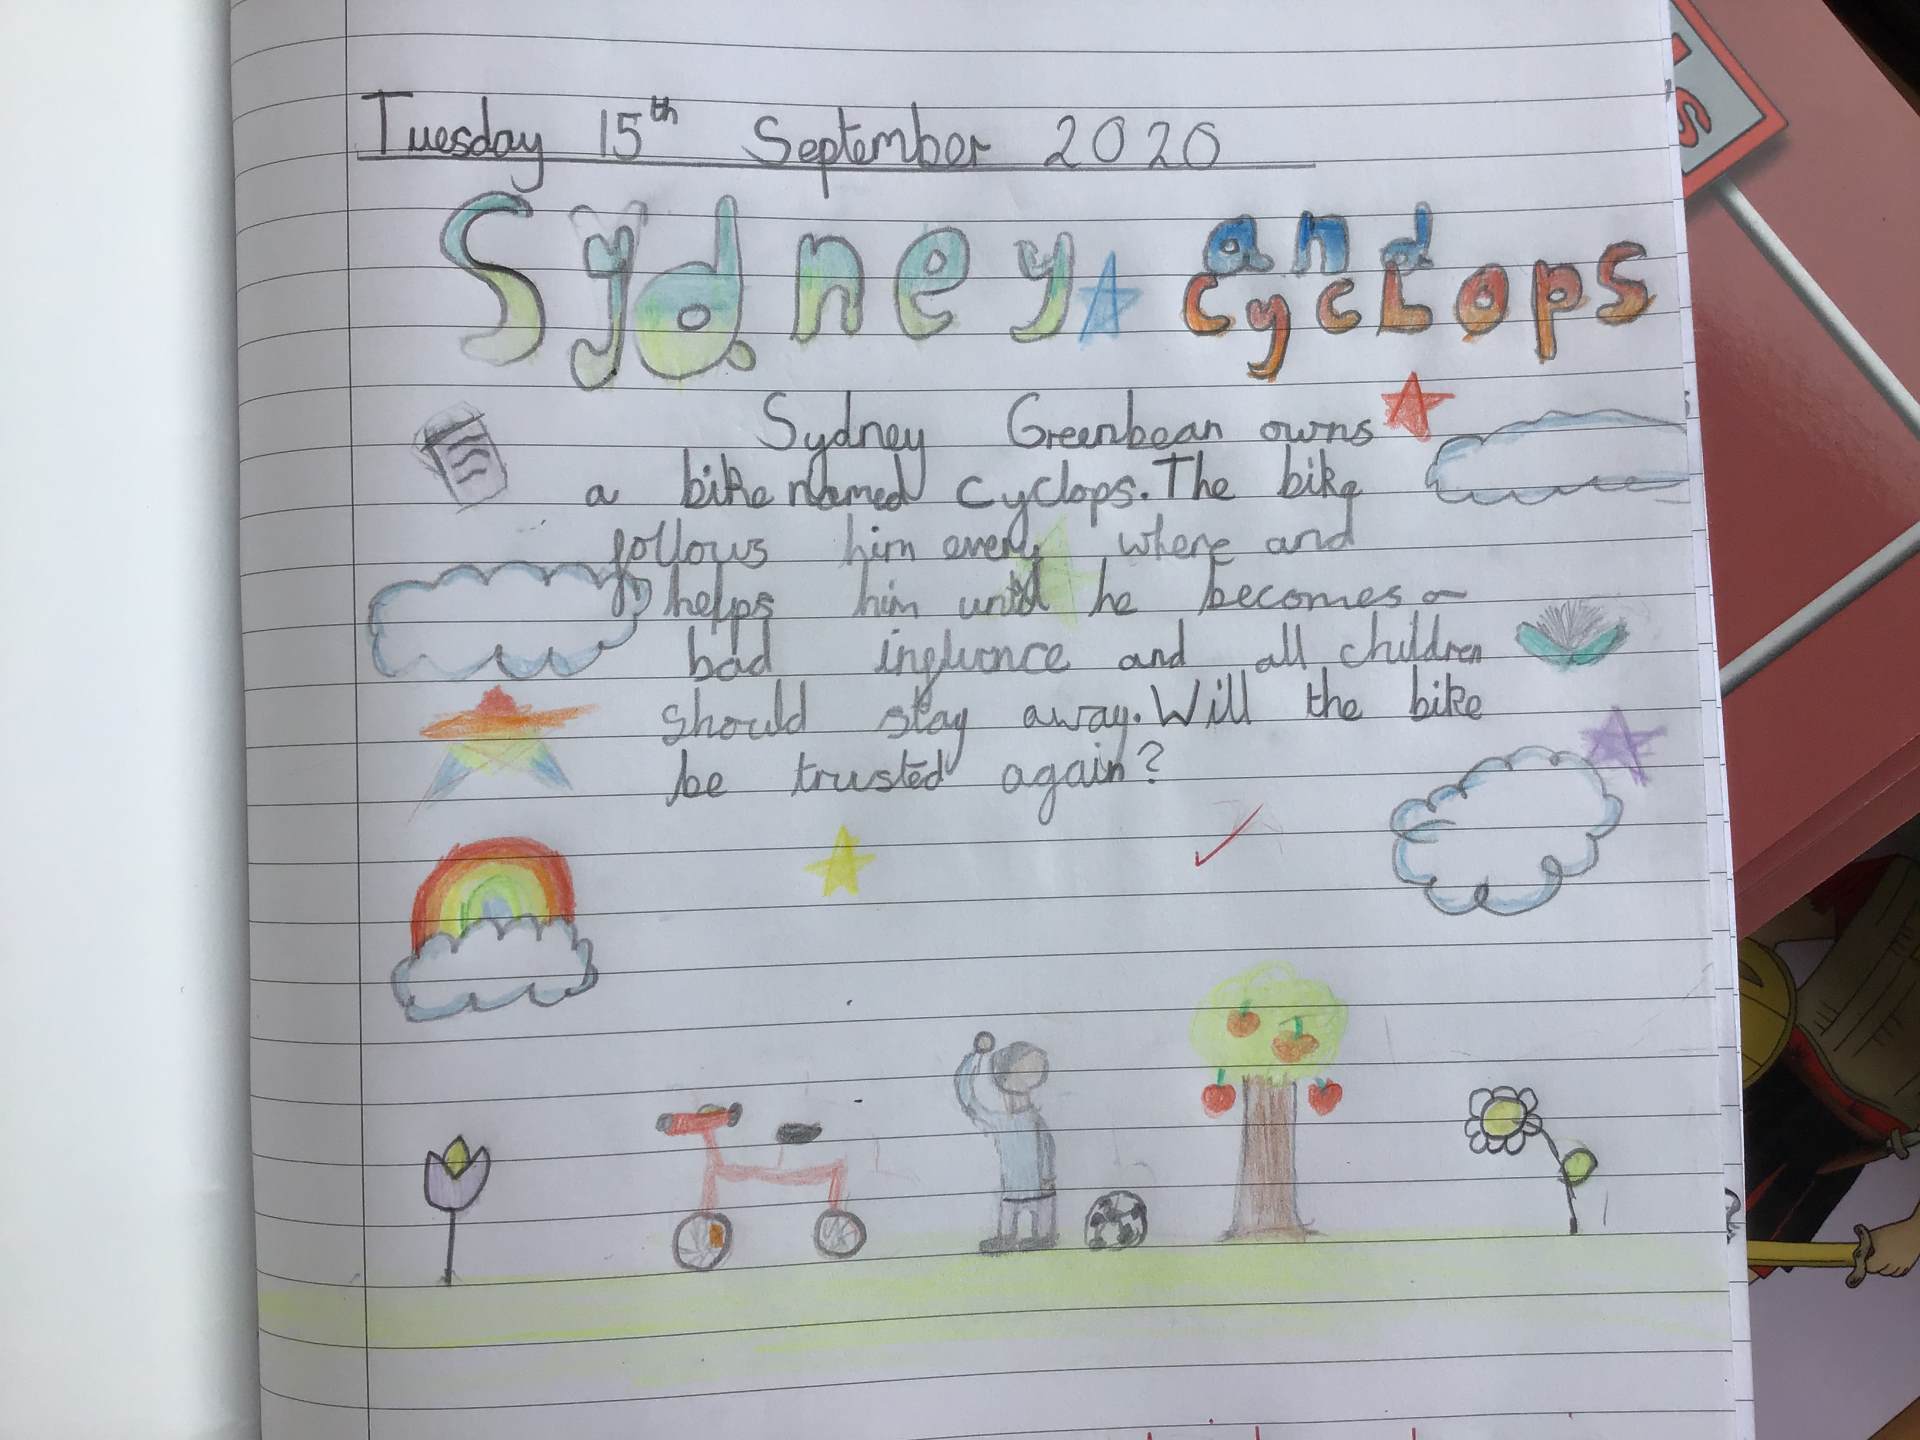 Tuesday 15th September 2020
Sydney and cycLops
Sydney Greenbean owns
a bike named cyclops. The bike
follows him every where and
helps him until he becomes a
bad influnce and all children
should stay away. Will the bike
be trusted again?